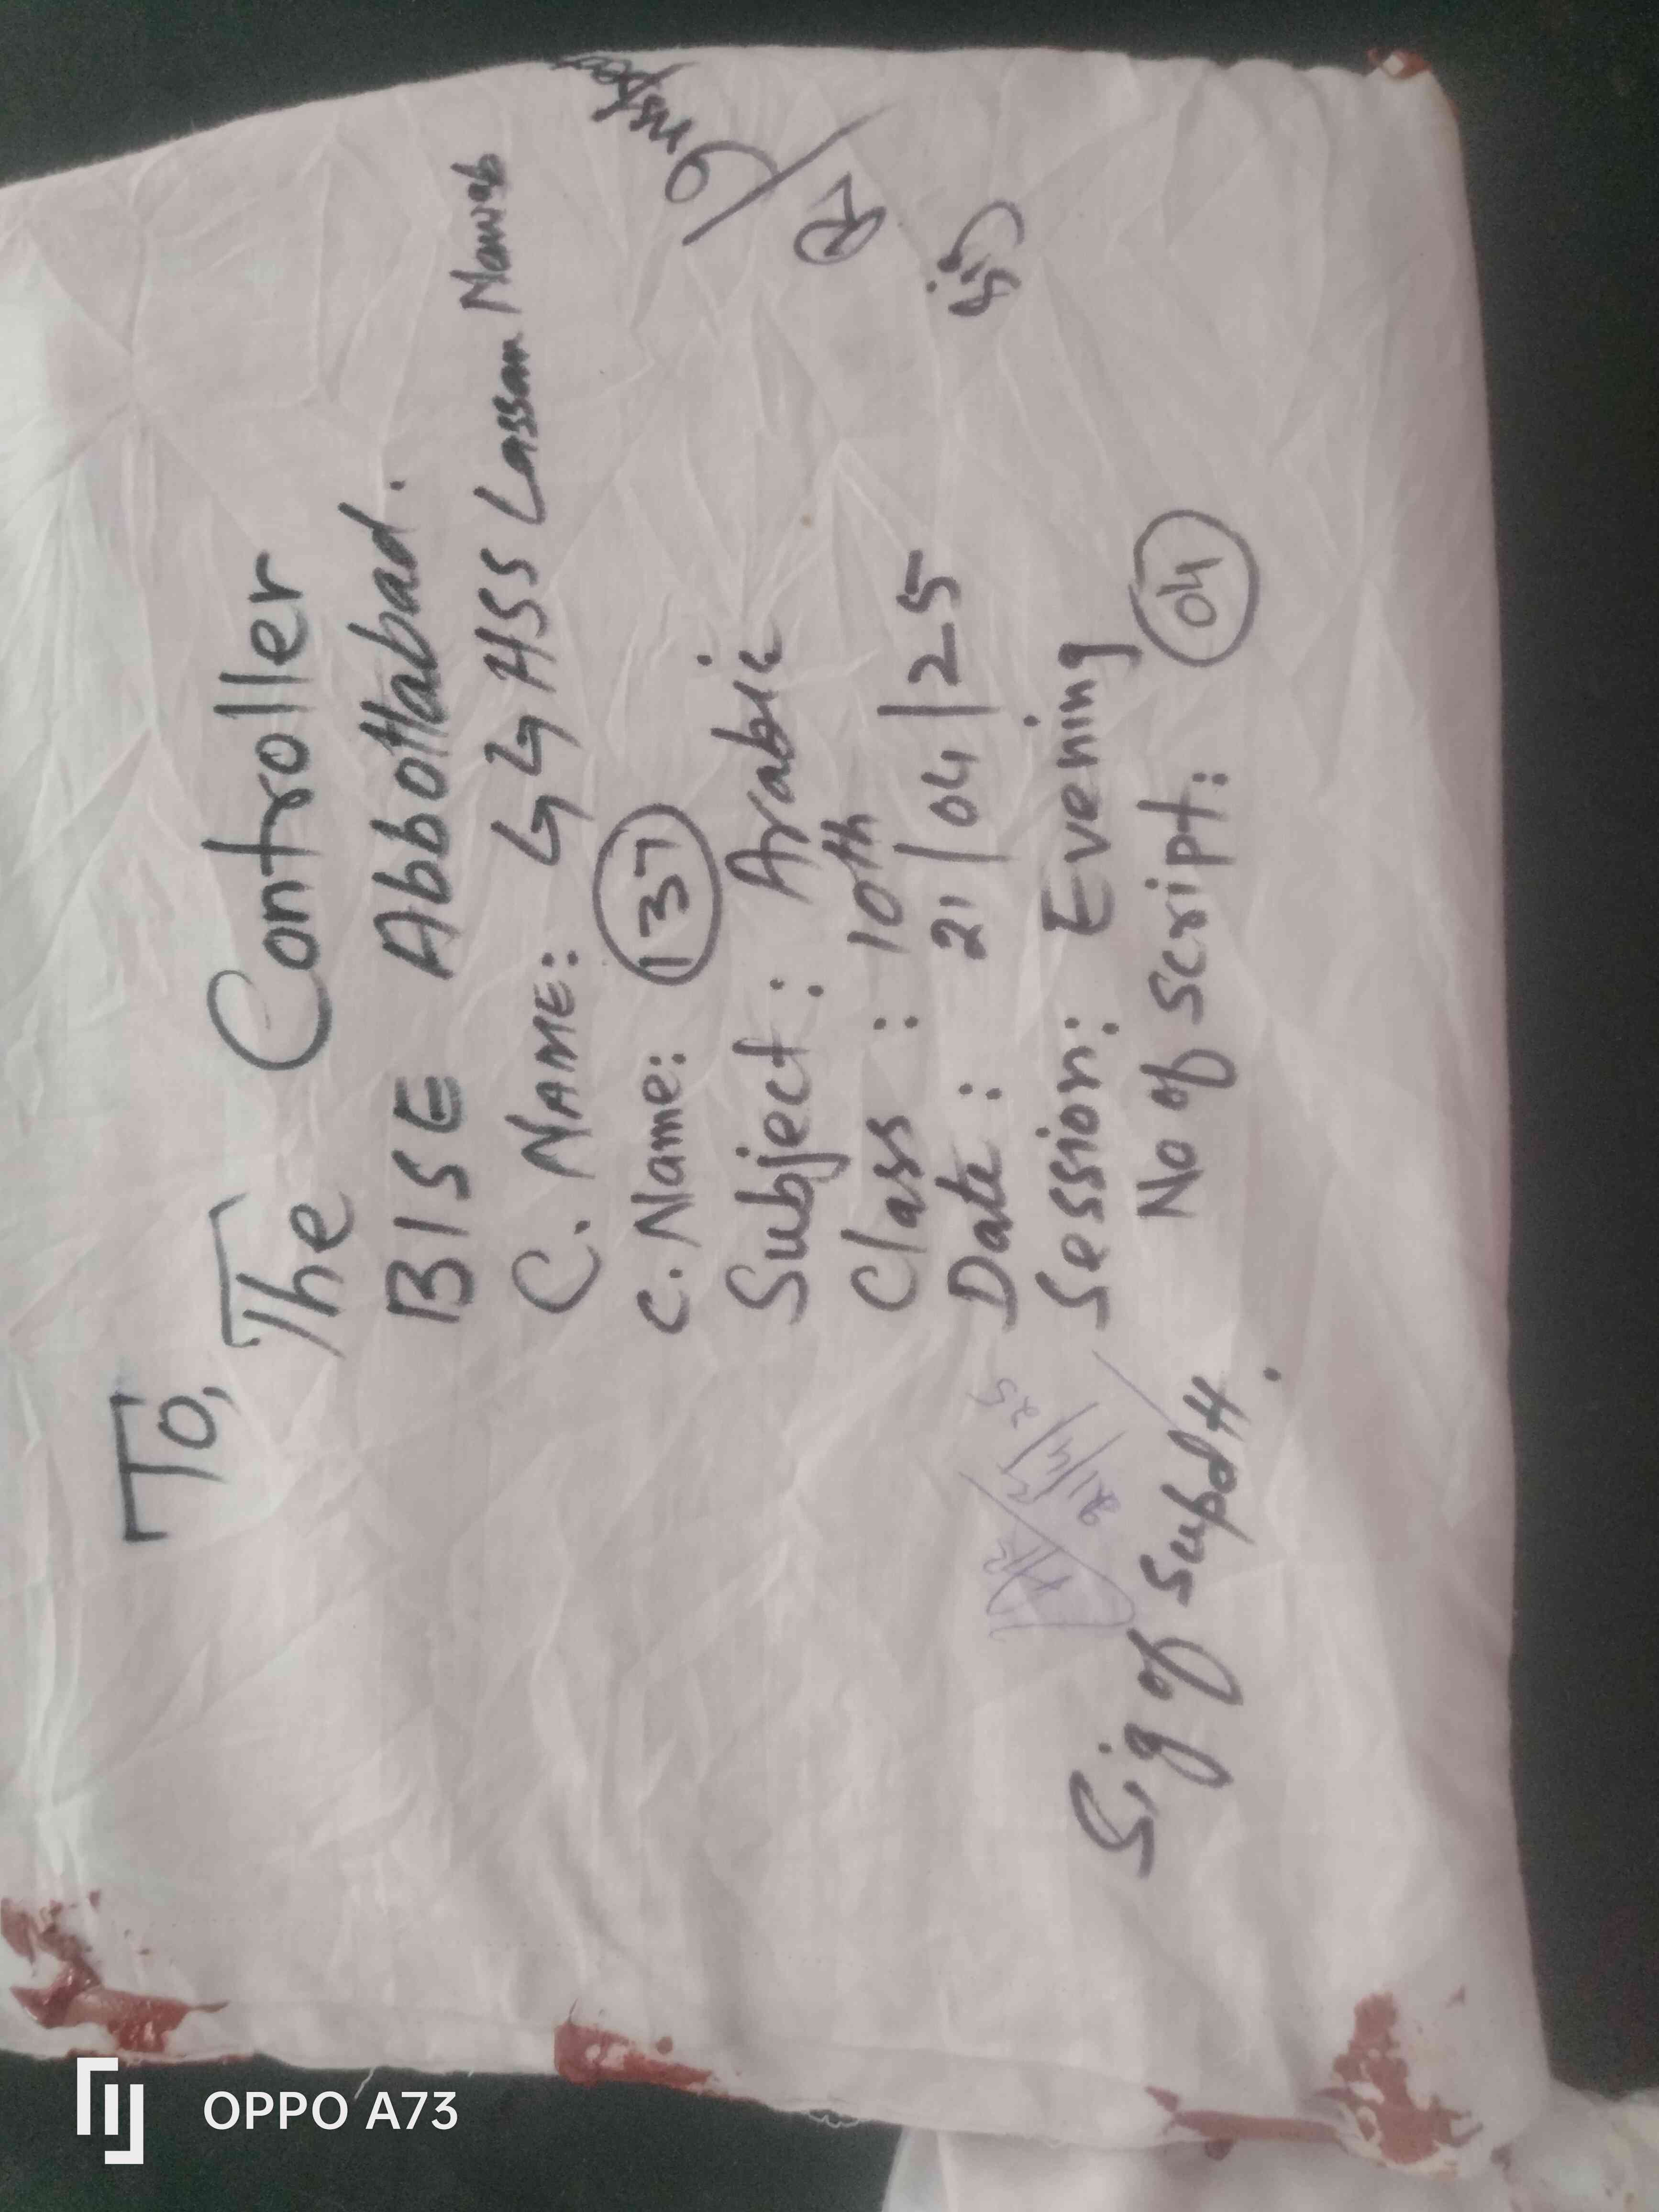 To,
The Controller
BISE Abbottabad.
C. NAME: GGHSS Lassan Nawab
C. Name: 137
Subject: Arabic
Class: 10th
Date: 21/04/25
Session: Evening
No of script: 04
Sig of Supdtt.
21/4/25
OPPO A73